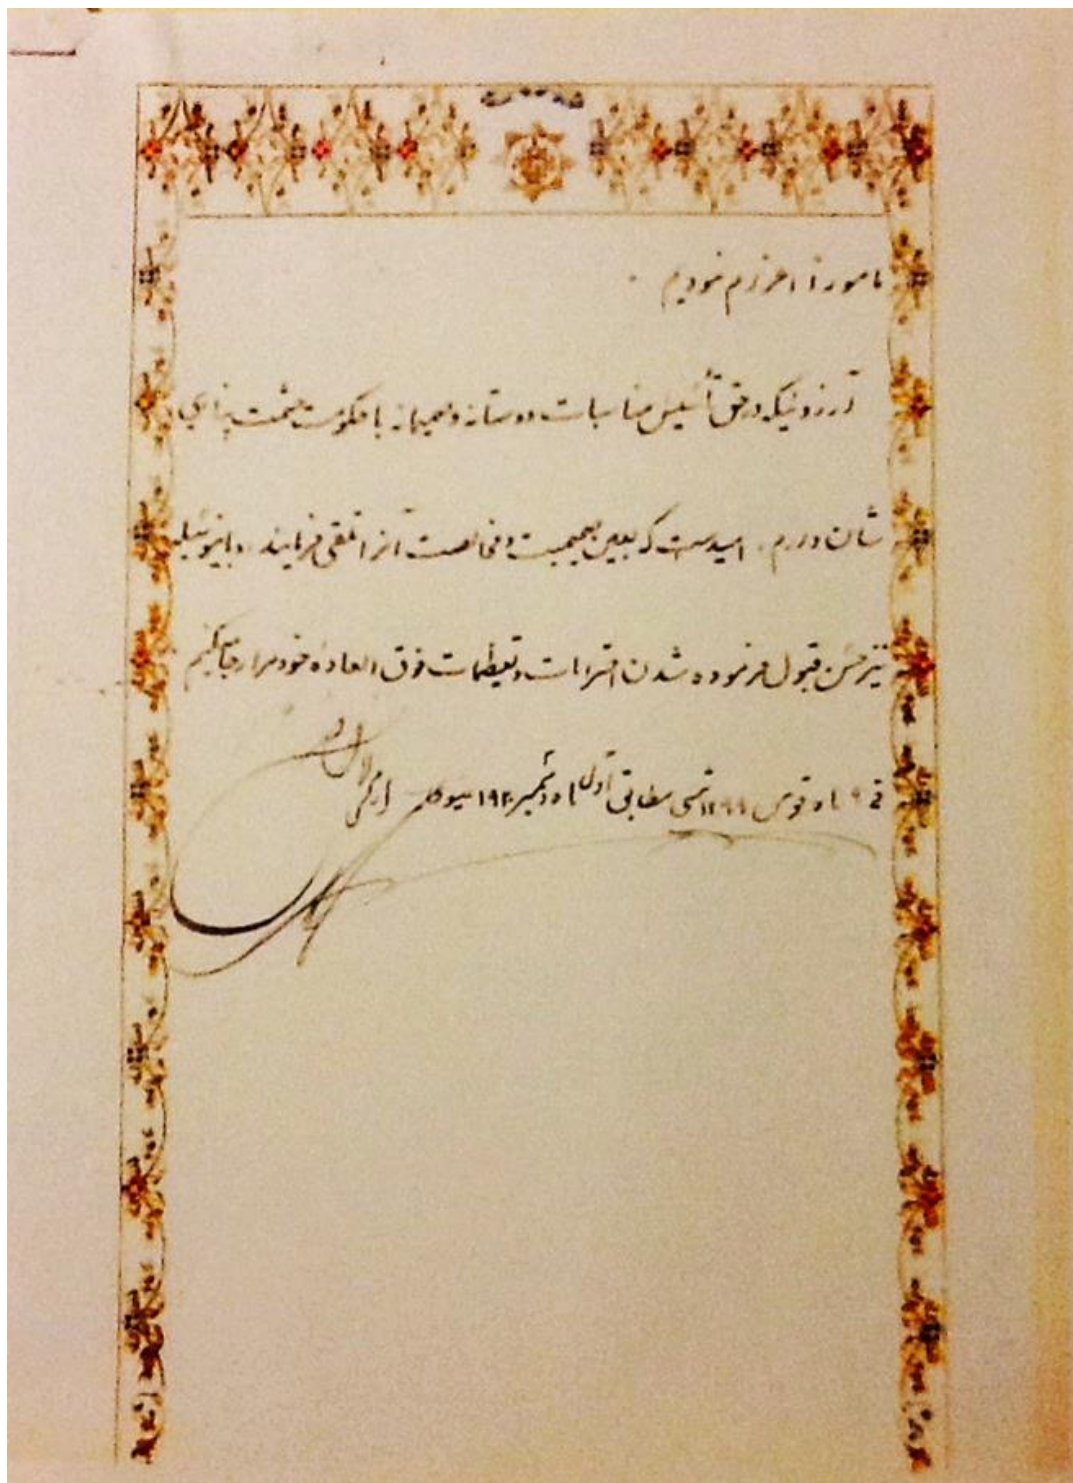 مامور و اعزام نمودیم .
آرزوئیکه در حق تأسیس مناسبات دوستانه و صمیمانه با حکومت حشمت پناهی
شان دارم . امیدست که بعین صمیمیت و مخالصت آنرا تلقی فرمایند . و باینوسیله
نیز حسن قبول فرموده شدن احترامات و تعظیمات فوق العاده خود مرا رجا میکنیم
فی ۹ ماه قوس ۱۲۹۹ شمسی مطابق اول ماه دسمبر ۱۹۲۰ میسوی